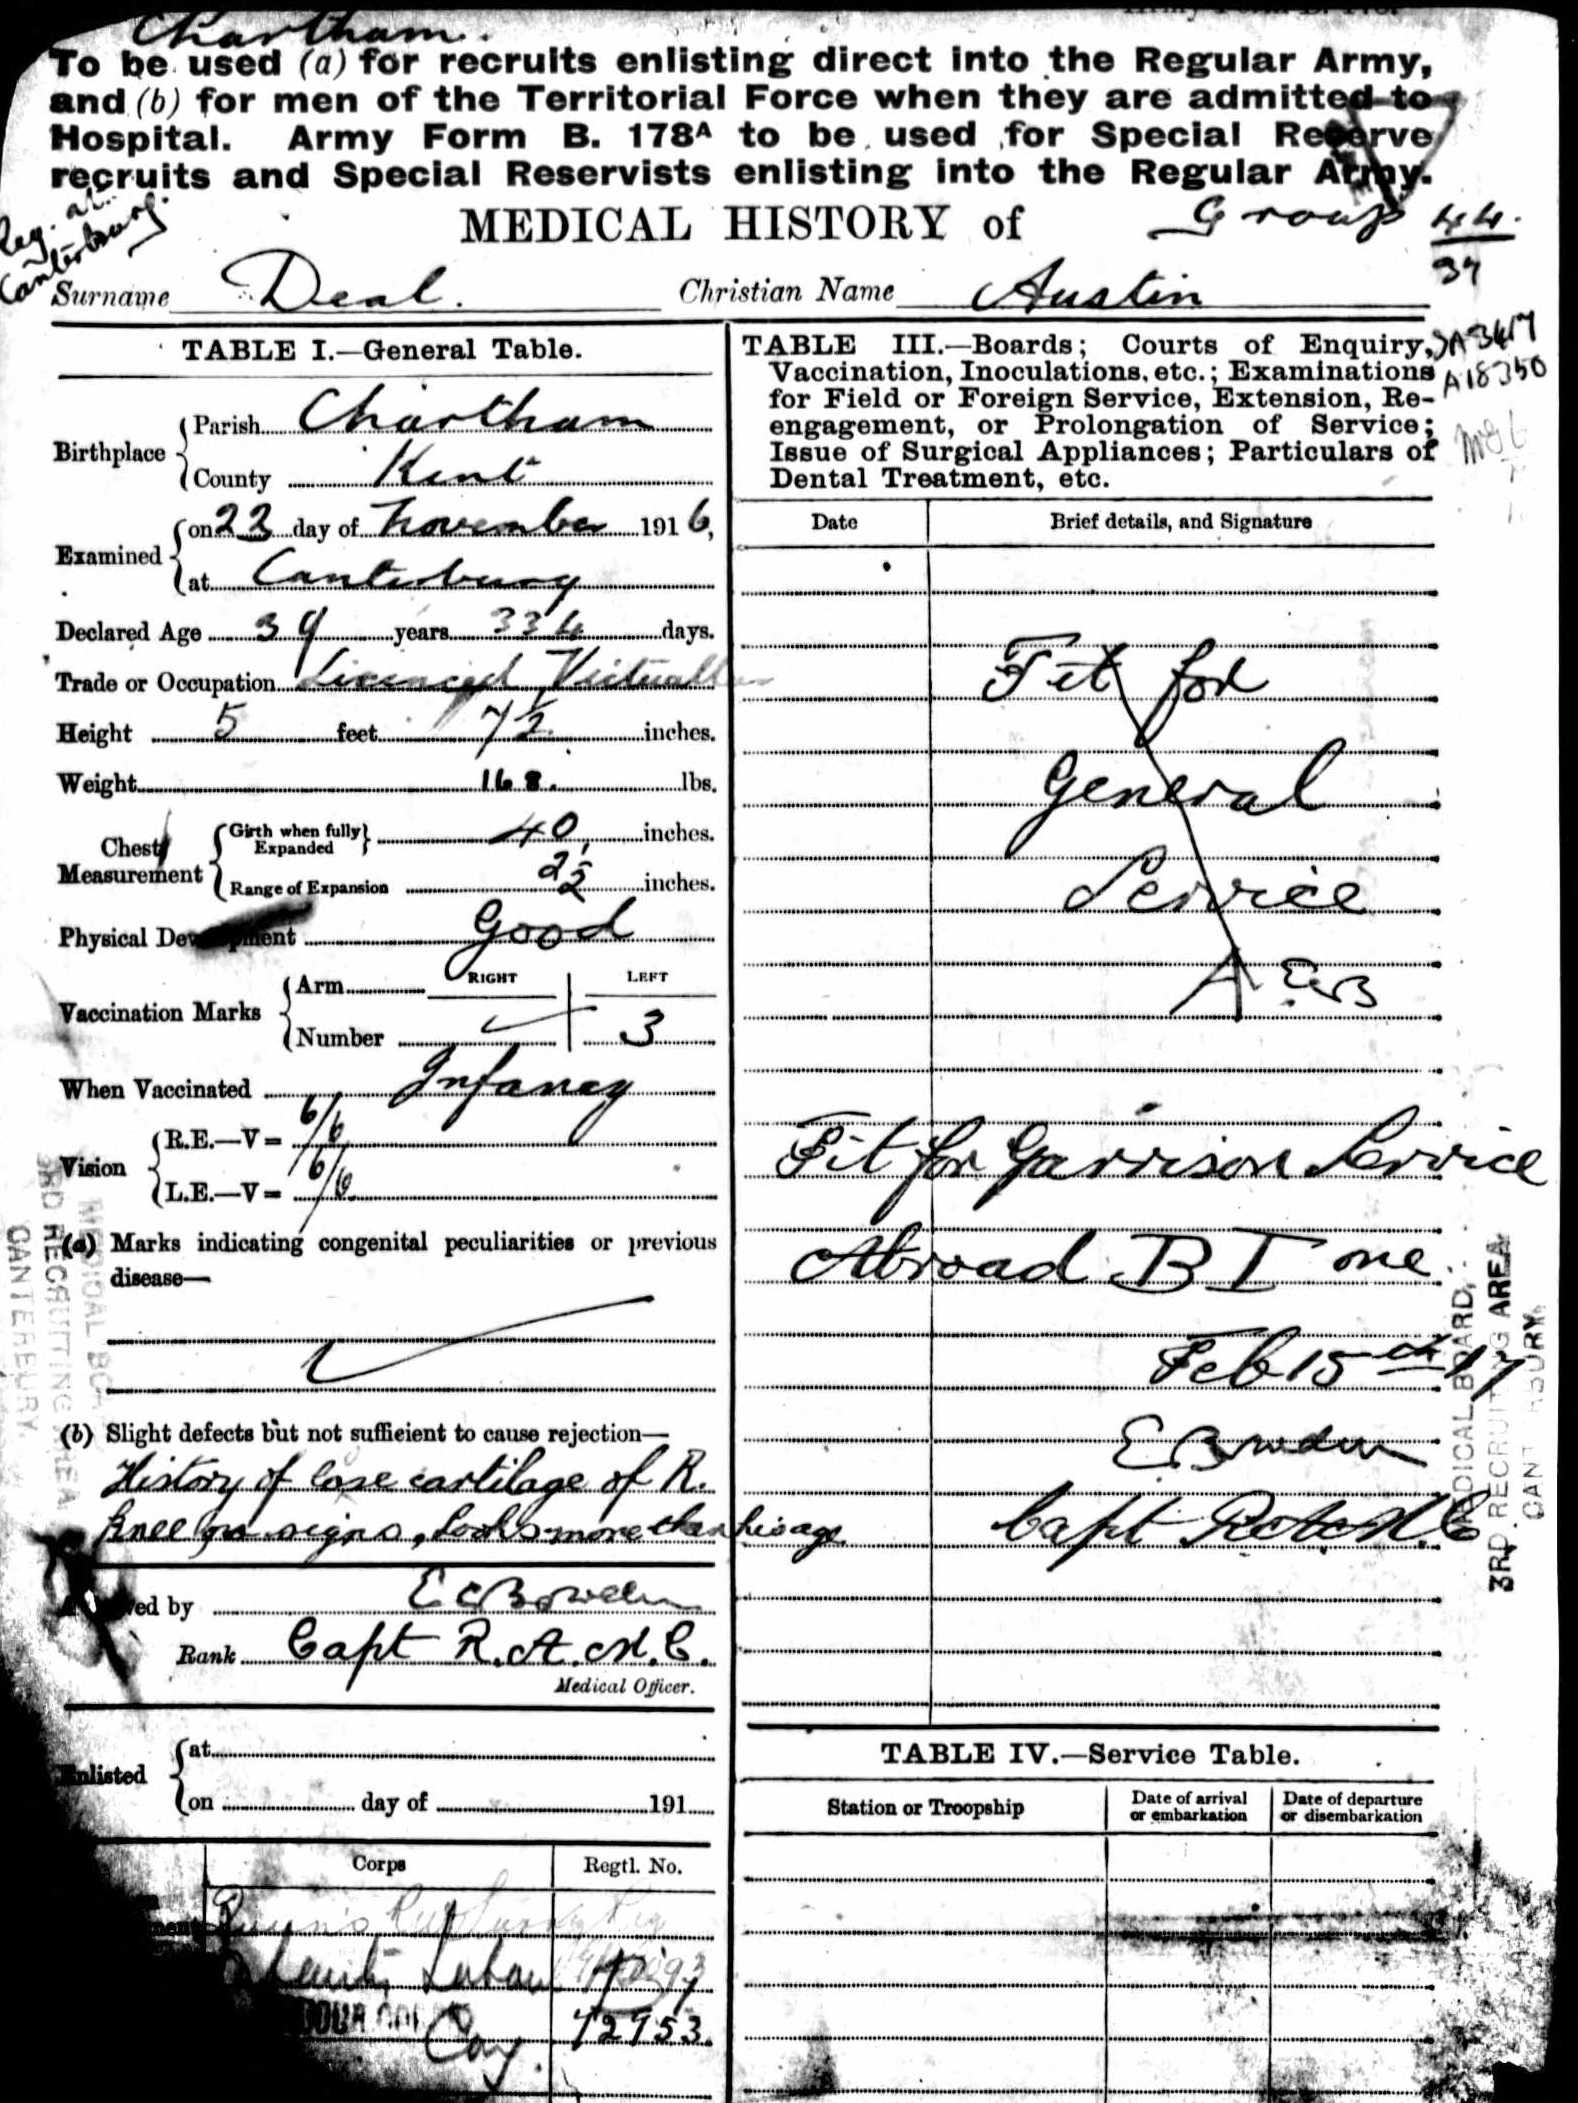 Chartham.
To be used (a) for recruits enlisting direct into the Regular Army,
and (b) for men of the Territorial Force when they are admitted to
Hospital. Army Form B. 178A to be used for Special Reserve
recruits and Special Reservists enlisting into the Regular Army.
Reg. at
Canterbury.
MEDICAL HISTORY of
Group 44.
37
Surname Deal. Christian Name Austin
TABLE I.—General Table.
Birthplace
Parish Chartham
County Kent
Examined
on 23 day of November 1916,
at Canterbury
Declared Age 39 years 334 days.
Trade or Occupation Licenced Victualler
Height 5 feet 7½ inches.
Weight 168. lbs.
Chest Measurement
Girth when fully Expanded 40 inches.
Range of Expansion 2½ inches.
Physical Development Good
Vaccination Marks
RIGHT LEFT
Arm
Number 3
When Vaccinated Infancy
Vision
R.E.—V= 6/6
L.E.—V= 6/6
(a) Marks indicating congenital peculiarities or previous
disease—
(b) Slight defects but not sufficient to cause rejection—
History of lose cartilage of R.
knee no signs, looks more than his age
ved by E C Bowden
Rank Capt R.A.M.C.
Medical Officer.
Enlisted
at
on day of 191
Corps Regtl. No.
Queen's
Labour
Coy. 72953.
MEDICAL BO
3RD RECRUITING AREA
CANTERBURY
TABLE III.—Boards; Courts of Enquiry,
Vaccination, Inoculations, etc.; Examinations
for Field or Foreign Service, Extension, Re-
engagement, or Prolongation of Service;
Issue of Surgical Appliances; Particulars of
Dental Treatment, etc.
A18350
Date Brief details, and Signature
Fit for
General
Service
A ECB
Fit for Garrison Service
Abroad B I one
Feb 15th 17
E Bowden
Capt R.A.M.C
MEDICAL BOARD,
3RD RECRUITING AREA
CANTERBURY.
TABLE IV.—Service Table.
Station or Troopship
Date of arrival
or embarkation
Date of departure
or disembarkation